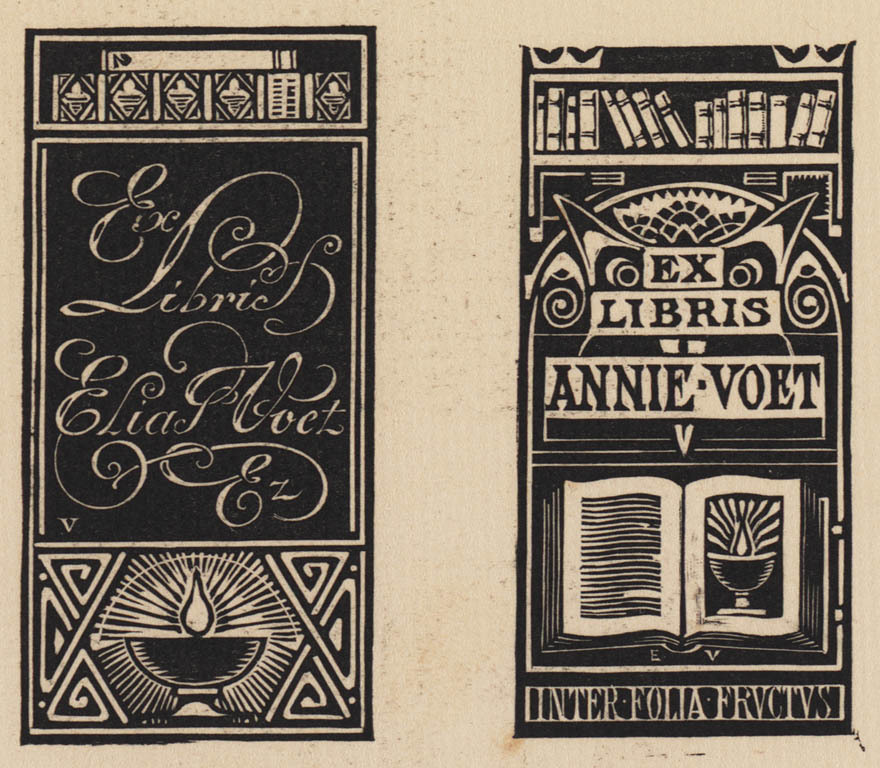 Ex
Libris
Elias Voet
Ez
V
EX
LIBRIS
ANNIE·VOET
V
E V
INTER·FOLIA·FRVCTVS